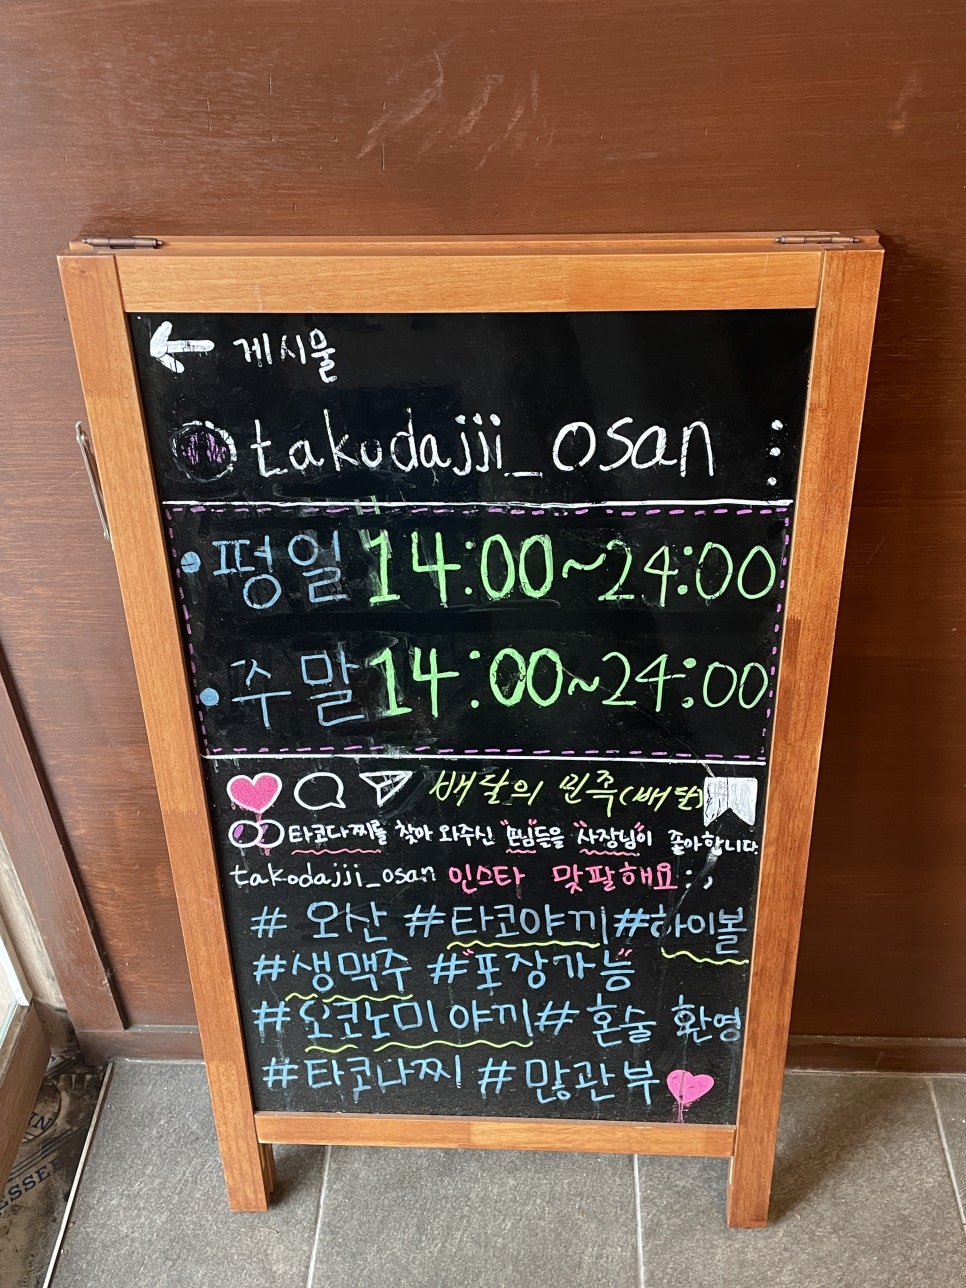 게시물
takodajji_osan
평일 14:00~24:00
주말 14:00~24:00
배달의 민족(배달)
타코다찌를 찾아 와주신 "손님"들을 "사장님"이 좋아합니다.
takodajji_osan 인스타 맞팔해요:)
# 오산 #타코야끼 #하이볼
#생맥주 #"포장가능"
#오코노미야끼 # 혼술 환영
#타코다찌 #많관부